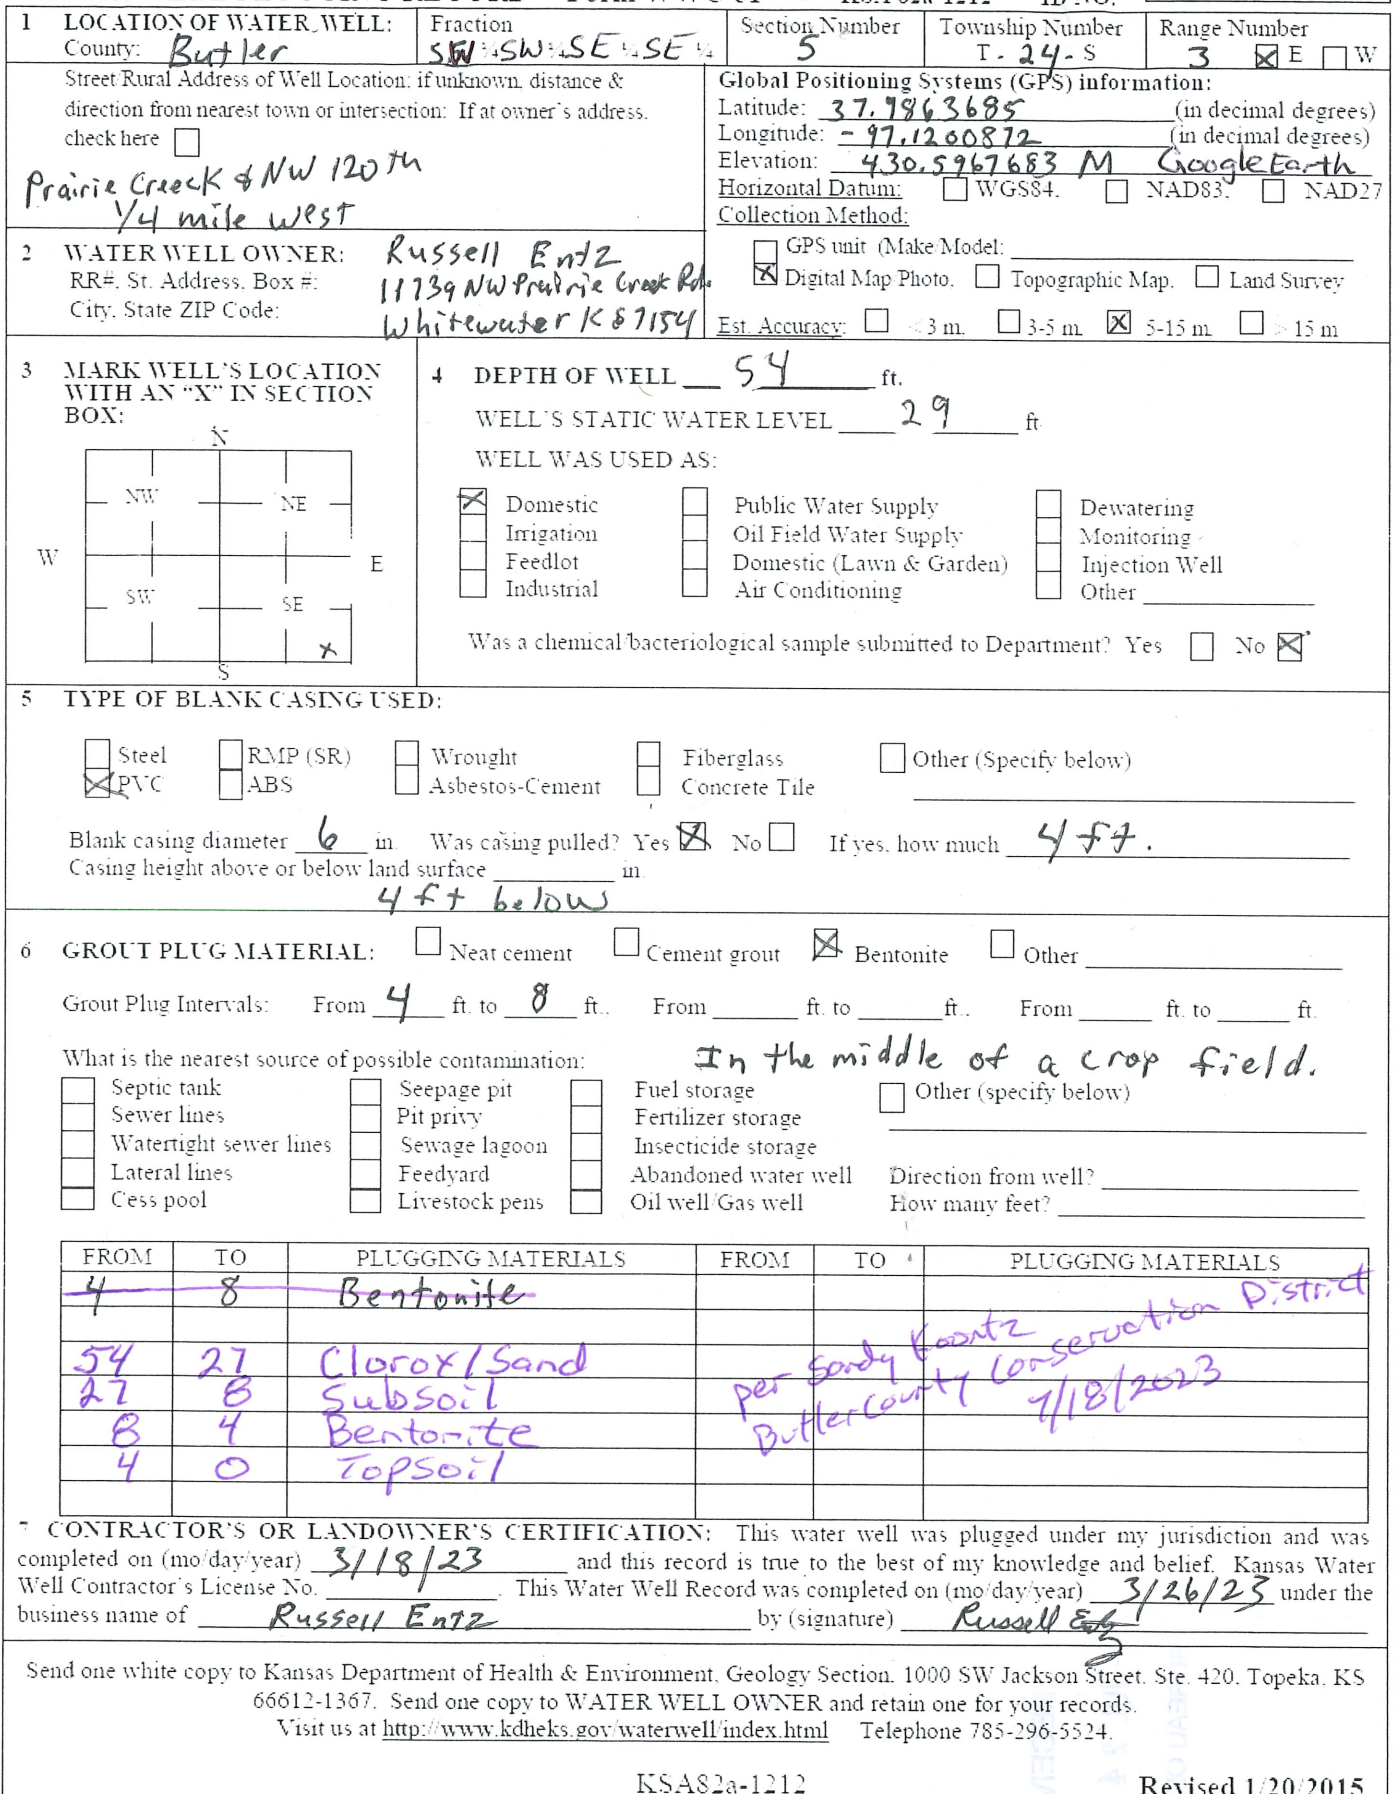 1 LOCATION OF WATER WELL: Fraction Section Number Township Number Range Number
County: Butler SW ¼ SW ¼ SE ¼ SE ¼ 5 T. 24. S 3 ☒ E ☐ W
Street/Rural Address of Well Location: if unknown, distance &
direction from nearest town or intersection: If at owner's address,
check here ☐
Prairie Creeck & NW 120th
1/4 mile west
Global Positioning Systems (GPS) information:
Latitude: 37.9863685 (in decimal degrees)
Longitude: - 97.1200872 (in decimal degrees)
Elevation: 430.5967683 M Google Earth
Horizontal Datum: ☐ WGS84, ☐ NAD83, ☐ NAD27
Collection Method:
☐ GPS unit (Make/Model:
☒ Digital Map/Photo, ☐ Topographic Map, ☐ Land Survey
Est. Accuracy: ☐ < 3 m, ☐ 3-5 m ☒ 5-15 m, ☐ > 15 m
2 WATER WELL OWNER: Russell Entz
RR#, St. Address, Box #: 11739 NW Prairie Creek Rd.
City, State ZIP Code: Whitewater KS 7154
3 MARK WELL'S LOCATION
WITH AN "X" IN SECTION
BOX:
N
NW NE
W E
SW SE
X
S
4 DEPTH OF WELL 54 ft.
WELL'S STATIC WATER LEVEL 29 ft
WELL WAS USED AS:
☒ Domestic ☐ Public Water Supply ☐ Dewatering
☐ Irrigation ☐ Oil Field Water Supply ☐ Monitoring
☐ Feedlot ☐ Domestic (Lawn & Garden) ☐ Injection Well
☐ Industrial ☐ Air Conditioning ☐ Other
Was a chemical/bacteriological sample submitted to Department? Yes ☐ No ☒
5 TYPE OF BLANK CASING USED:
☐ Steel ☐ RMP (SR) ☐ Wrought ☐ Fiberglass ☐ Other (Specify below)
☒ PVC ☐ ABS ☐ Asbestos-Cement ☐ Concrete Tile
Blank casing diameter 6 in. Was casing pulled? Yes ☒ No ☐ If yes, how much 4 ft.
Casing height above or below land surface in.
4 ft below
6 GROUT PLUG MATERIAL: ☐ Neat cement ☐ Cement grout ☒ Bentonite ☐ Other
Grout Plug Intervals: From 4 ft. to 8 ft., From ft. to ft., From ft. to ft.
What is the nearest source of possible contamination: In the middle of a crop field.
☐ Septic tank ☐ Seepage pit ☐ Fuel storage ☐ Other (specify below)
☐ Sewer lines ☐ Pit privy ☐ Fertilizer storage
☐ Watertight sewer lines ☐ Sewage lagoon ☐ Insecticide storage
☐ Lateral lines ☐ Feedyard ☐ Abandoned water well Direction from well?
☐ Cess pool ☐ Livestock pens ☐ Oil well/Gas well How many feet?
FROM TO PLUGGING MATERIALS FROM TO PLUGGING MATERIALS
4 8 Bentonite
54 27 Clorox/Sand
27 8 Subsoil
8 4 Bentonite
4 0 Topsoil
per Sandy Koontz
Butler County Conservation District
7/18/2023
7 CONTRACTOR'S OR LANDOWNER'S CERTIFICATION: This water well was plugged under my jurisdiction and was
completed on (mo/day/year) 3/18/23 and this record is true to the best of my knowledge and belief. Kansas Water
Well Contractor's License No. . This Water Well Record was completed on (mo/day/year) 3/26/23 under the
business name of Russell Entz by (signature) Russell Entz
Send one white copy to Kansas Department of Health & Environment, Geology Section, 1000 SW Jackson Street, Ste. 420, Topeka, KS
66612-1367. Send one copy to WATER WELL OWNER and retain one for your records.
Visit us at http://www.kdheks.gov/waterwell/index.html Telephone 785-296-5524.
KSA82a-1212
Revised 1/20/2015